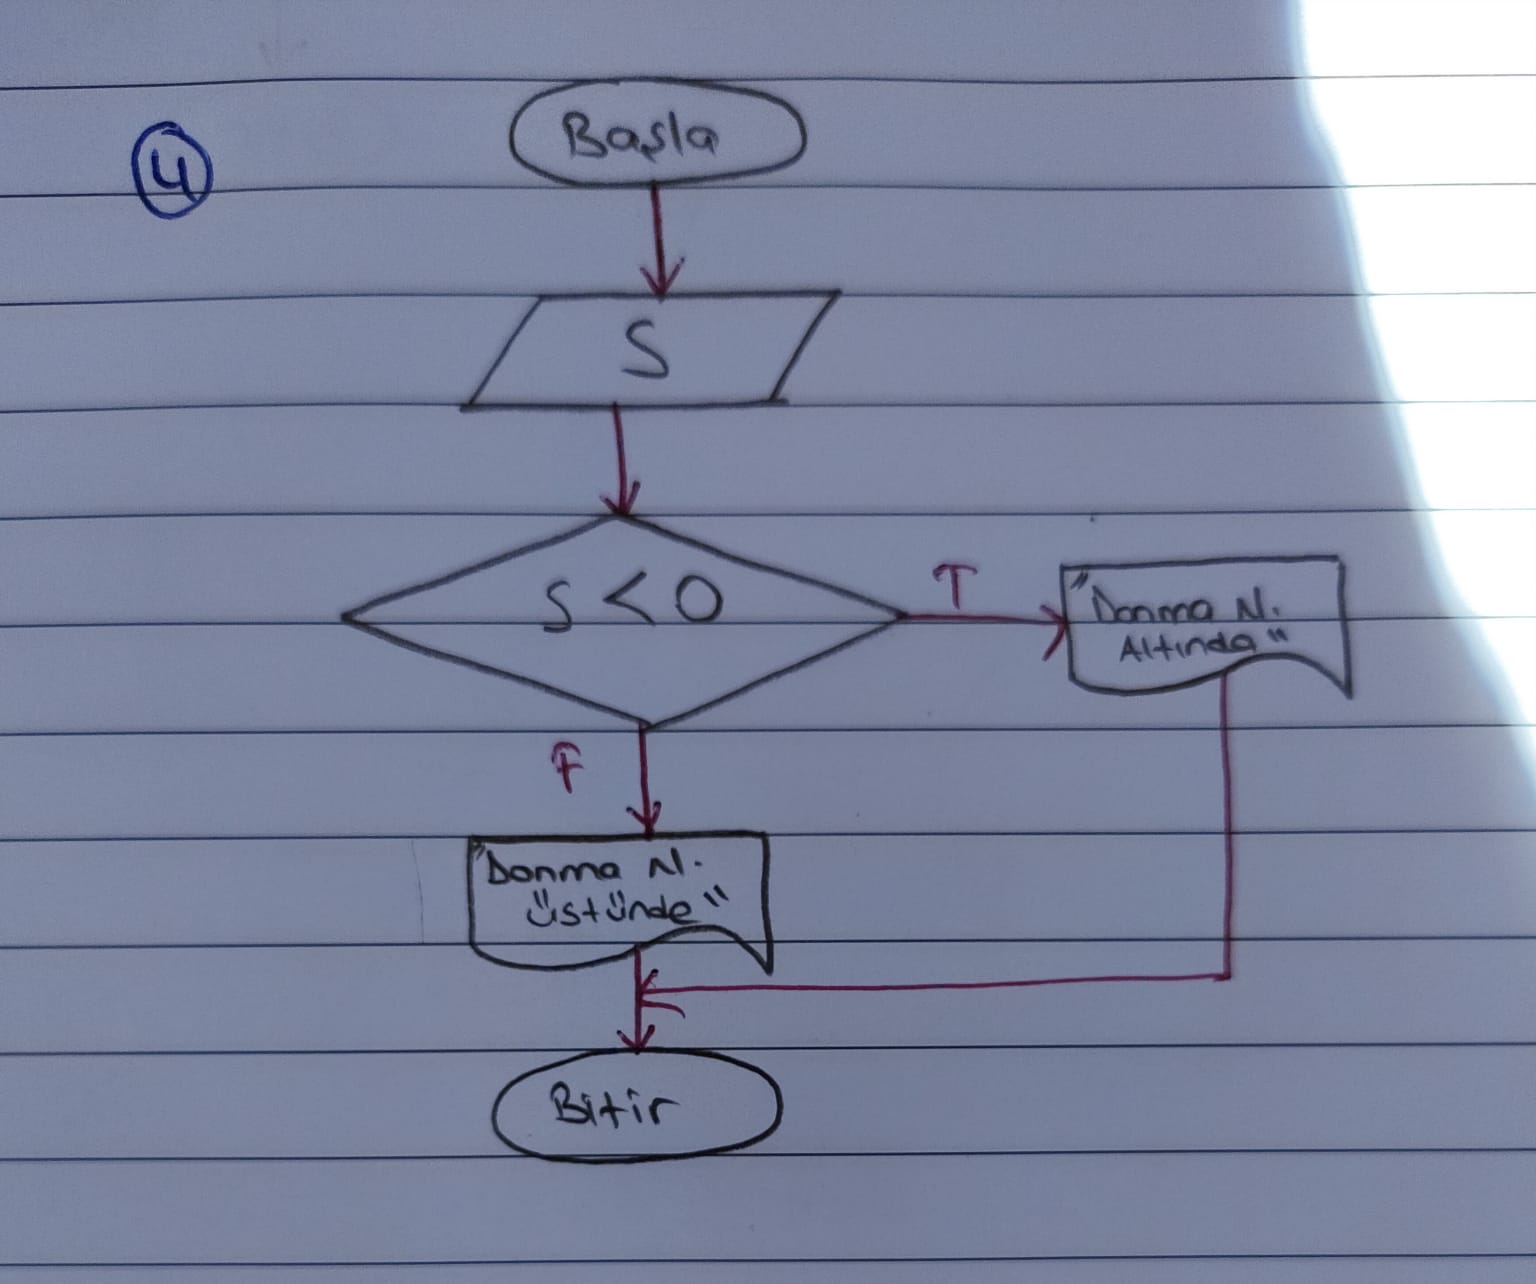 4
Başla
S
S < 0
T
"Donma N.
Altında"
F
"Donma N.
üstünde"
Bitir